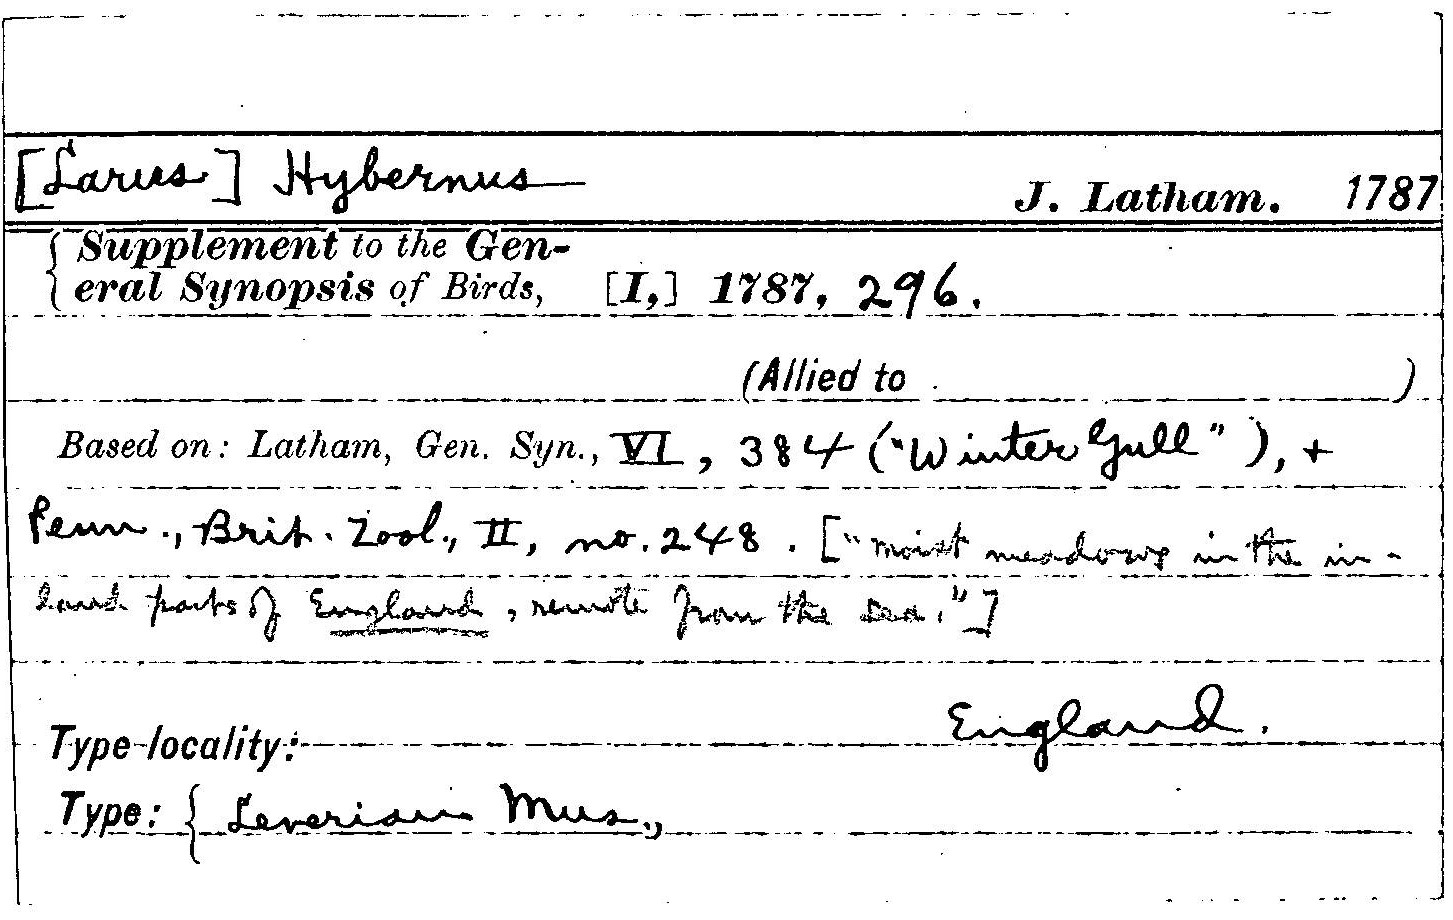 [Larus] Hybernus J. Latham. 1787
Supplement to the Gen-
eral Synopsis of Birds, [I,] 1787, 296.
(Allied to )
Based on: Latham, Gen. Syn., VI, 384 ("Winter Gull"), +
Penn., Brit. Zool., II, no. 248. ["moist meadows in the in-
land parts of England, remote from the sea."]
Type-locality: England.
Type: { Leverian Mus.,